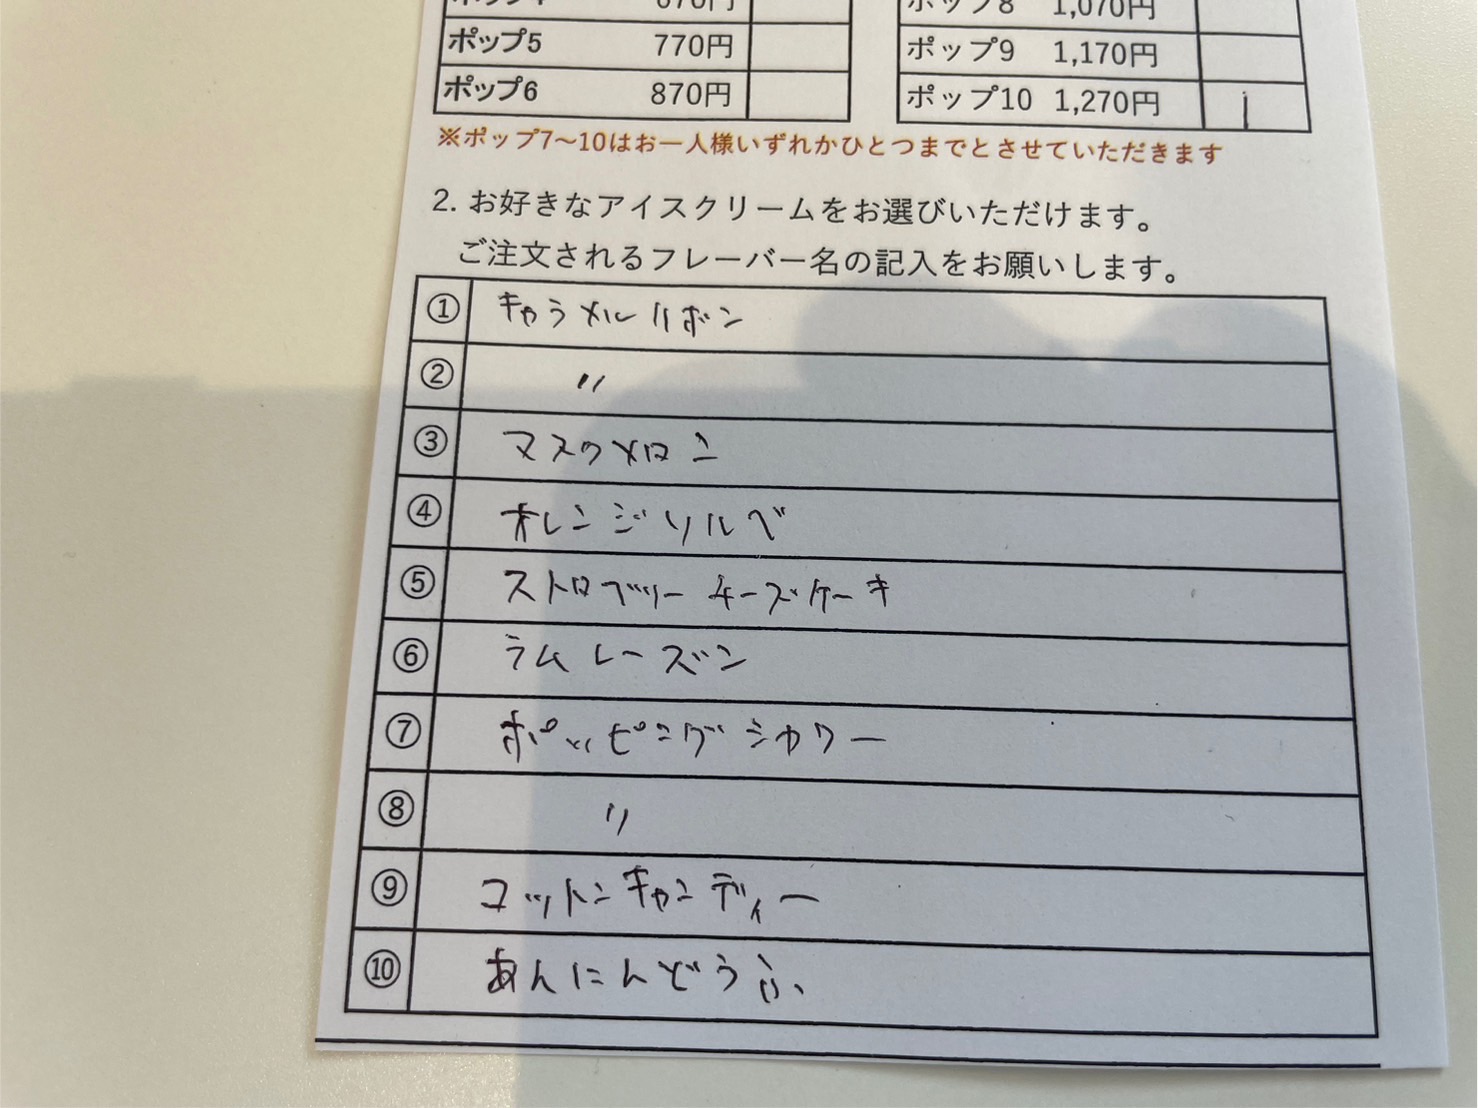 ポップ4 670円
ポップ5 770円
ポップ6 870円
ポップ8 1,070円
ポップ9 1,170円
ポップ10 1,270円 1
※ポップ7〜10はお一人様いずれかひとつまでとさせていただきます
2. お好きなアイスクリームをお選びいただけます。
ご注文されるフレーバー名の記入をお願いします。
① キャラメルリボン
② 〃
③ マスクメロン
④ オレンジソルベ
⑤ ストロベリーチーズケーキ
⑥ ラムレーズン
⑦ ポッピングシャワー
⑧ 〃
⑨ コットンキャンディー
⑩ あんにんどうふ